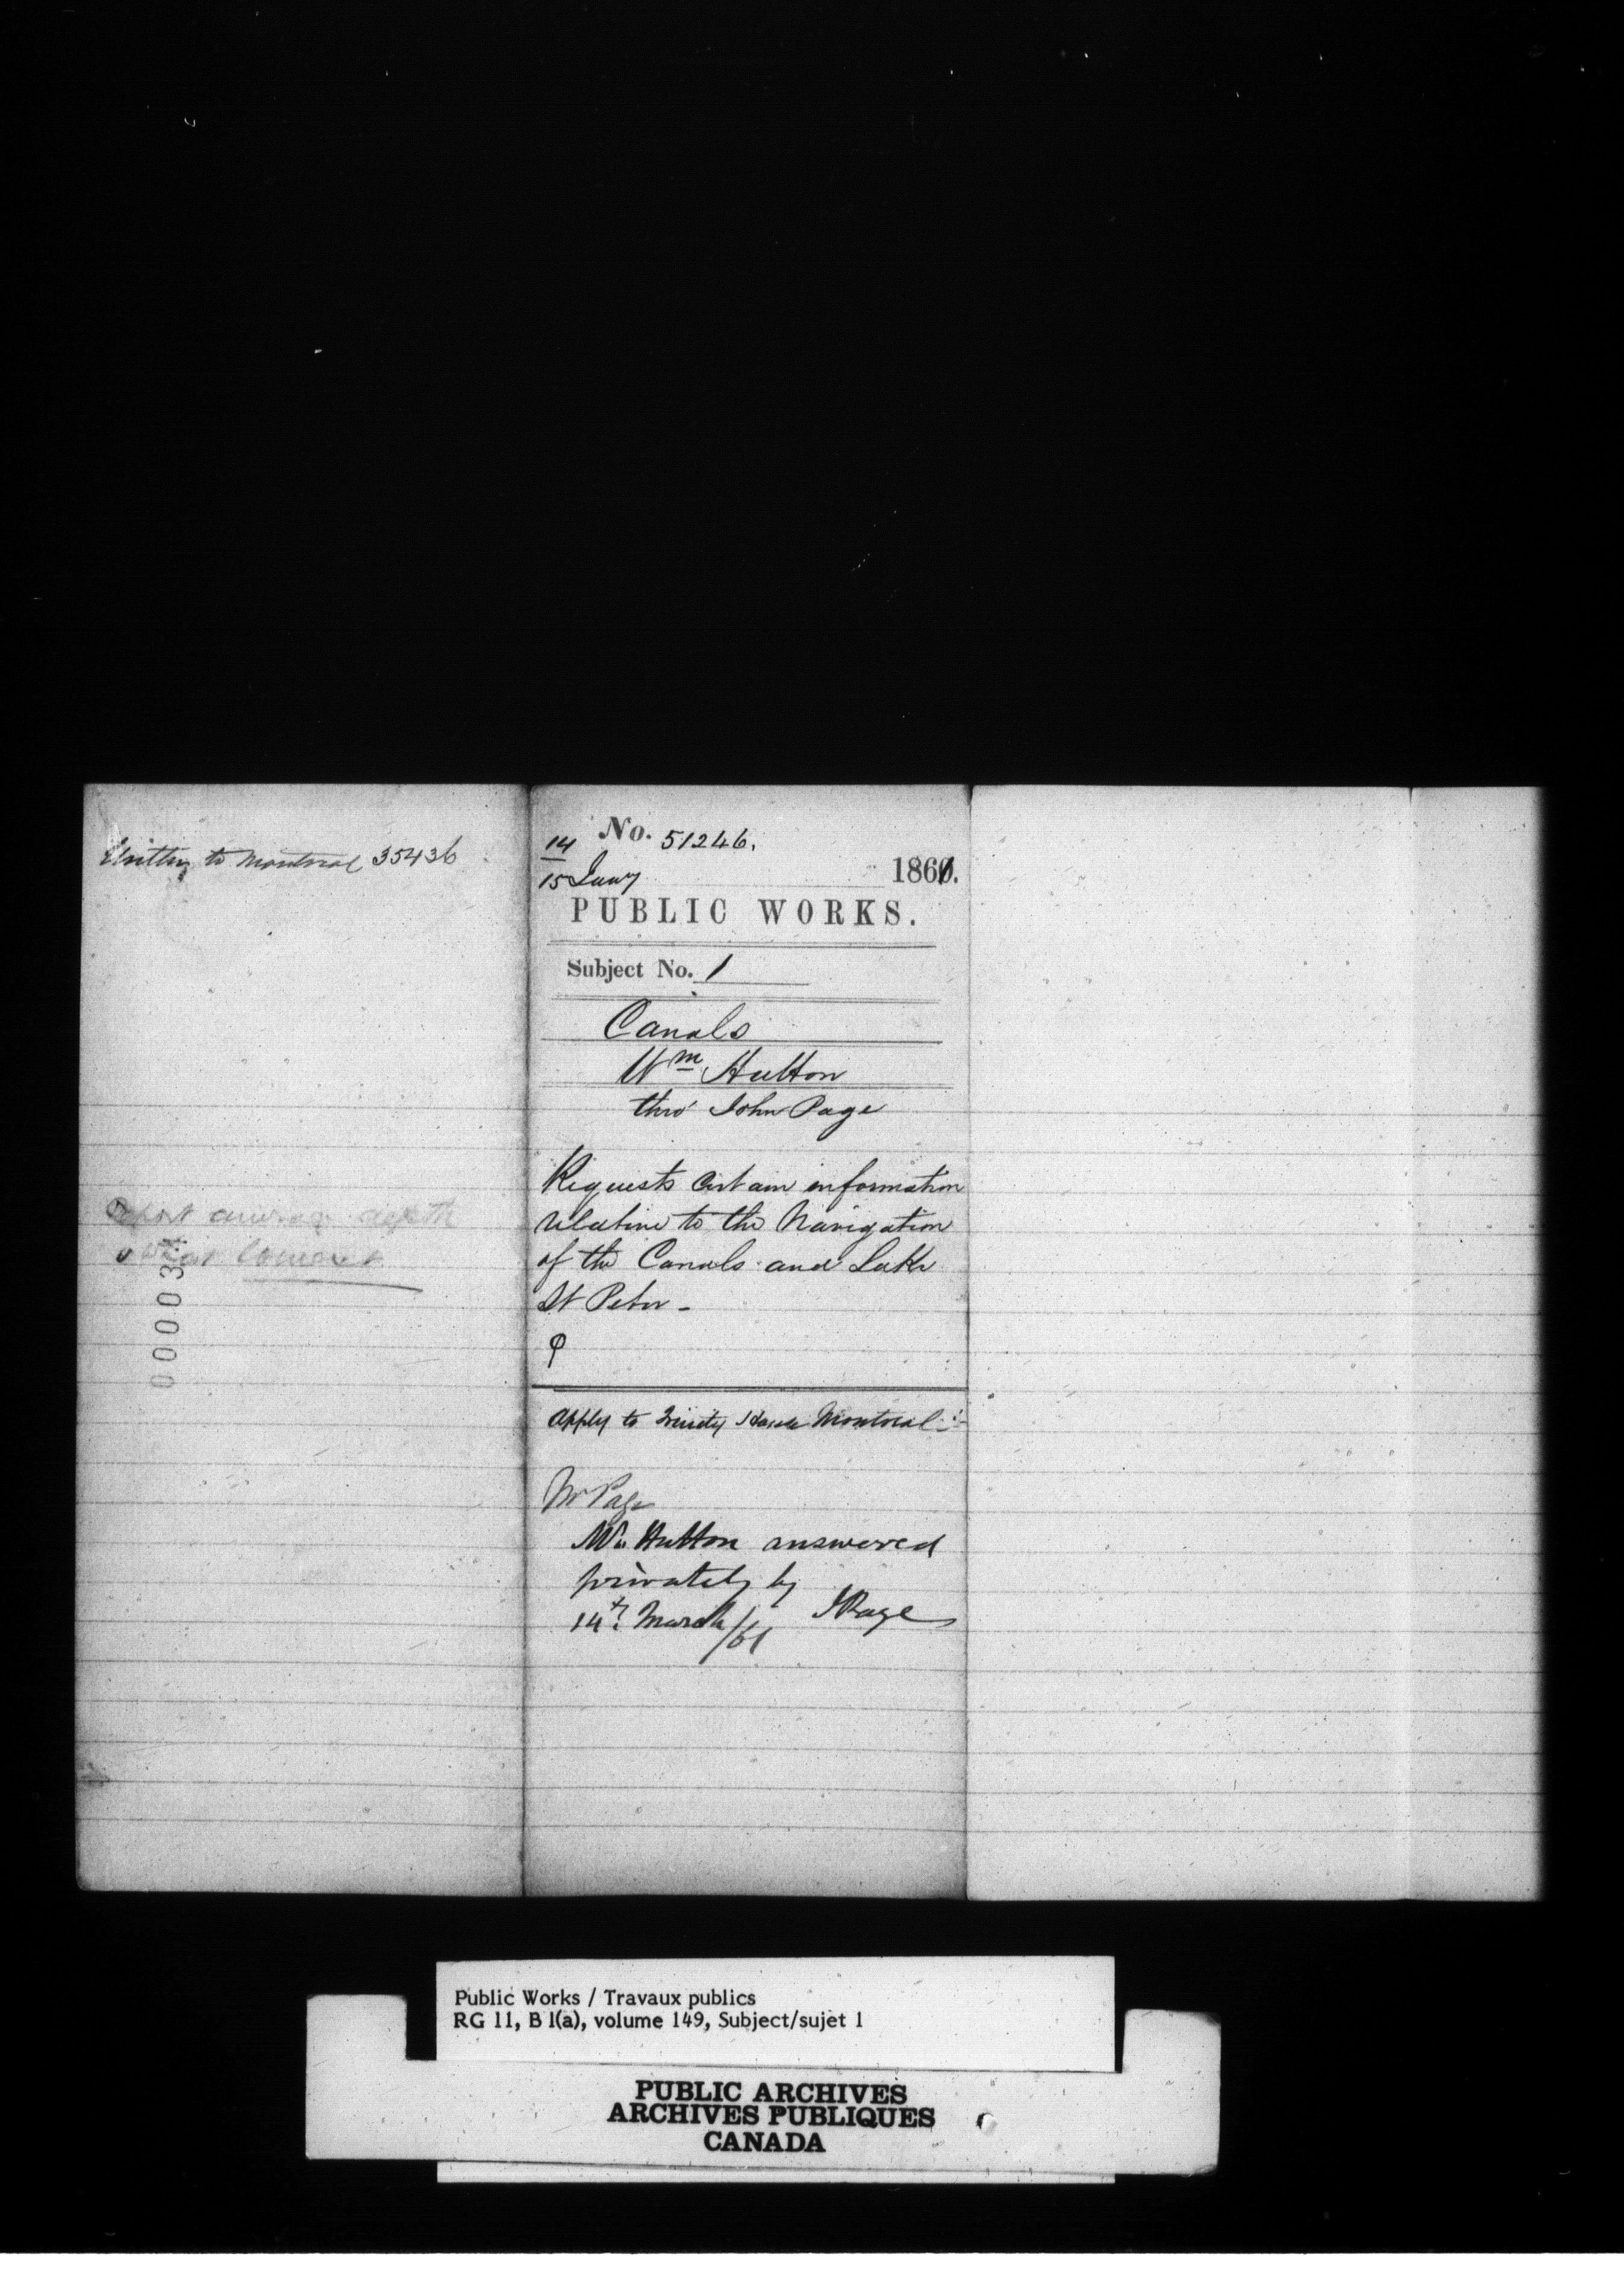 Written to Montreal 35436
depth
00003
No. 51246.
14
15 Jany 1861.
PUBLIC WORKS.
Subject No. 1
Canals
Wm Hutton
thro' John Page
Requests certain information
relative to the Navigation
of the Canals and Lake
St Peter -
Apply to Trinity House Montreal
Mr Page
Mr. Hutton answered
privately by
14th March/61 J Page
Public Works / Travaux publics
RG 11, B 1(a), volume 149, Subject/sujet 1
PUBLIC ARCHIVES
ARCHIVES PUBLIQUES
CANADA